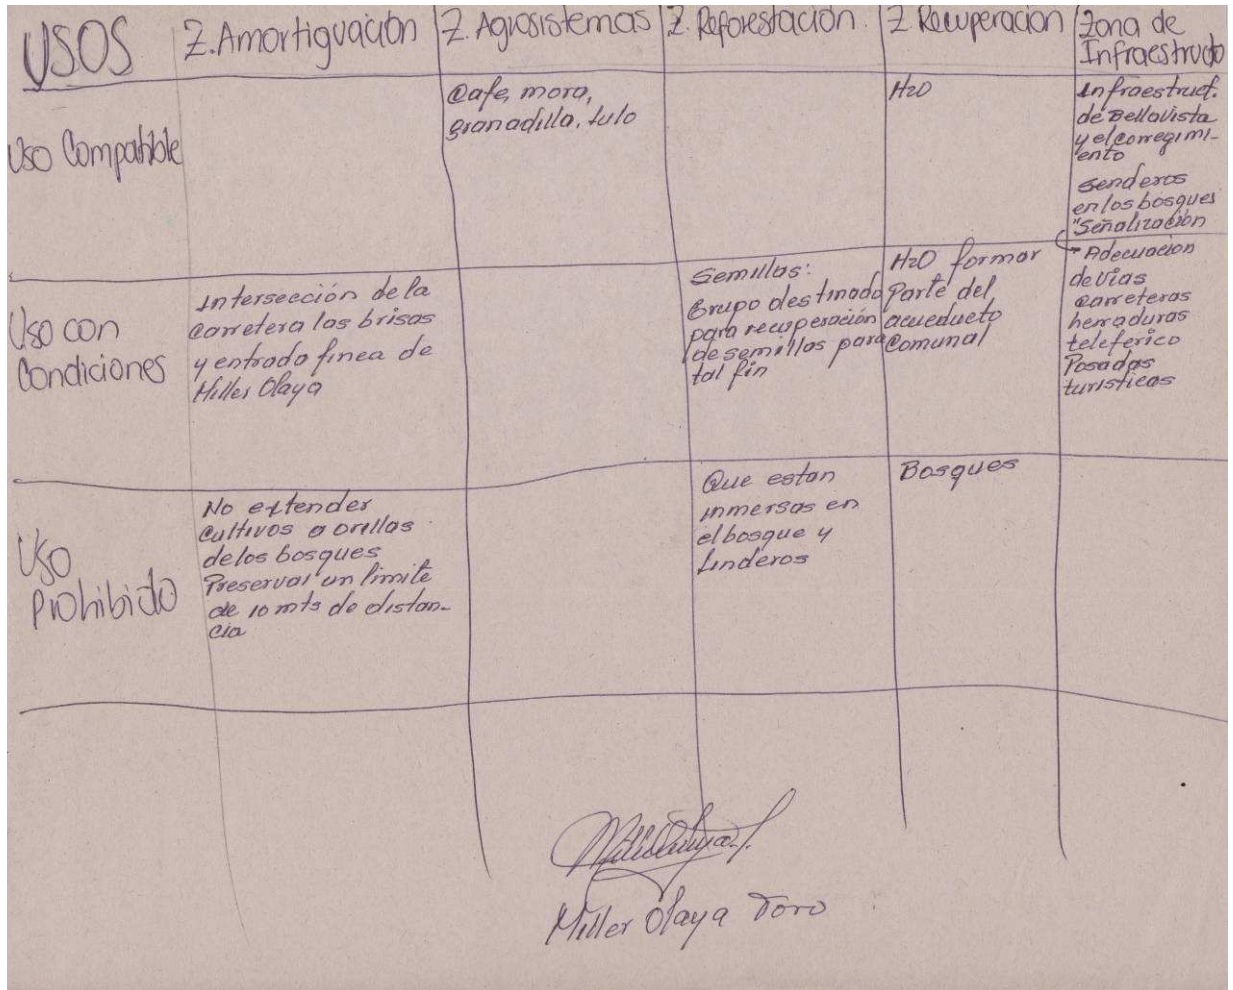 USOS
Z. Amortiguación
Z. Agrosistemas
Z. Reforestación.
Z Recuperacion
Zona de
Infraestructo
Uso Compatible
Cafe, mora,
granadilla, lulo
H2O
Infraestruct.
de Bellavista
y el corregimi-
ento
Senderos
en los bosques
"Señalización
Uso con
Condiciones
Intersección de la
Carretera las brisas
y entrada finca de
Miller Olaya
Semillas:
Grupo destinado
para recuperación
de semillas para
tal fin
H2O formar
Parte del
acueducto
Comunal
Adecuacion
de vias
carreteras
herraduras
teleferico
Posadas
turisticas
Uso
Prohibido
No extender
Cultivos a orillas
de los bosques
Preservar un limite
de 10 mts de distan-
cia
Que estan
inmersas en
el bosque y
linderos
Bosques
Miller Olaya Toro